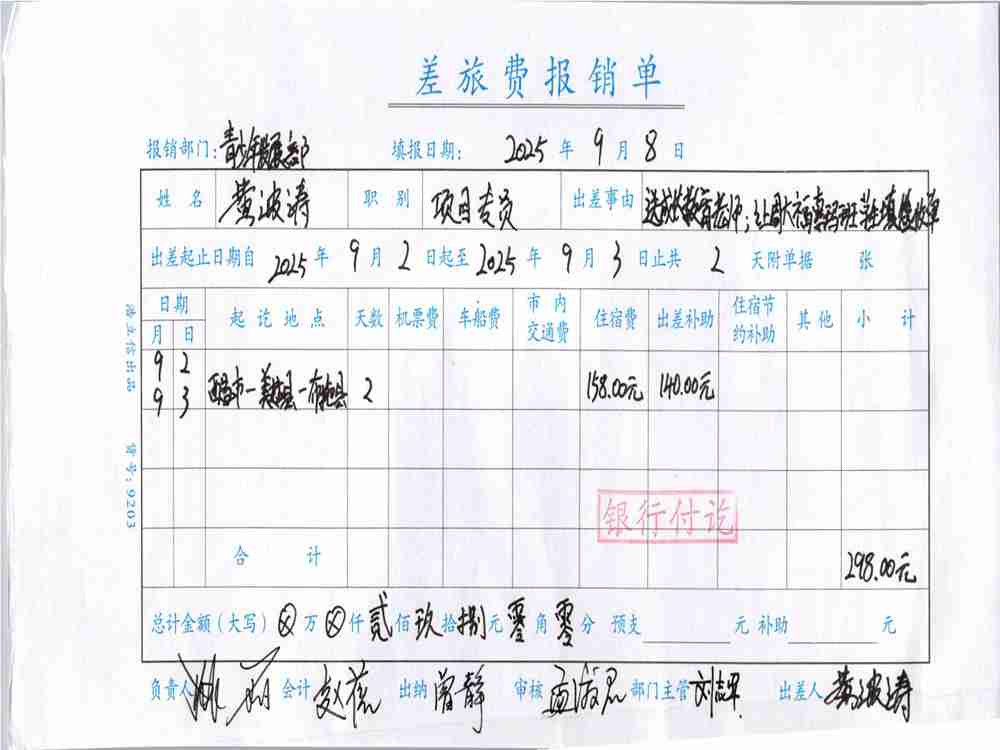 差旅费报销单
报销部门：青少年发展部 填报日期： 2025 年 9 月 8 日
姓 名 黄波涛 职 别 项目专员 出差事由
出差起止日期自 2025 年 9 月 2 日起至 2025 年 9 月 3 日止共 2 天附单据 张
日期 起讫地点 天数 机票费 车船费 市内交通费 住宿费 出差补助 住宿节约补助 其他 小计
月 日
9 2
9 3 西昌市－美姑县－布拖县 2 158.00元 140.00元
银行付讫
合 计 298.00元
总计金额（大写）ⓧ 万 ⓧ 仟 贰 佰 玖 拾 捌 元 零 角 零 分 预支 元 补助 元
负责人 会计 赵蕊 出纳 曾静 审核 部门主管 出差人 黄波涛
货号：9203